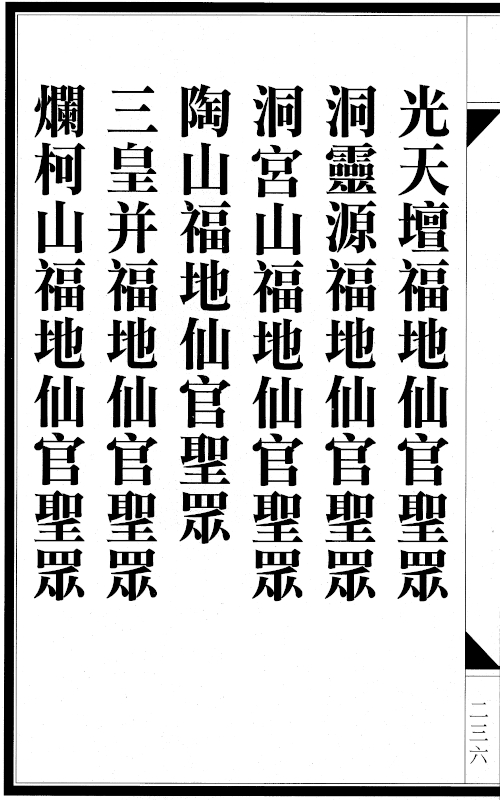 光天壇福地仙官聖眾
洞靈源福地仙官聖眾
洞宮山福地仙官聖眾
陶山福地仙官聖眾
三皇井福地仙官聖眾
爛柯山福地仙官聖眾
二三六